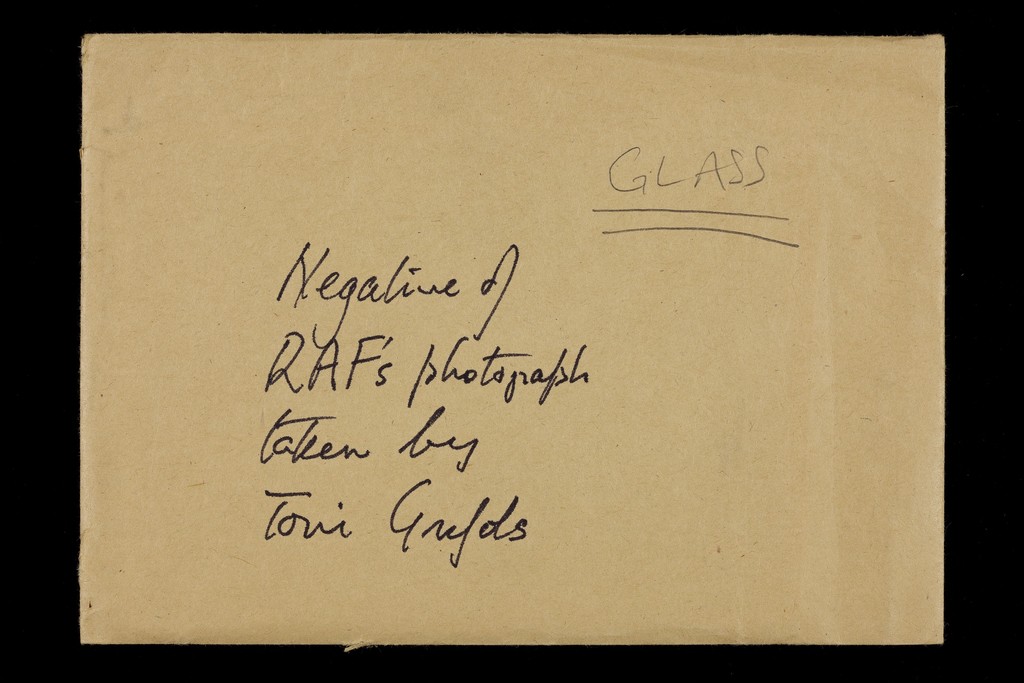 GLASS
Negative of
RAF's photograph
taken by
Toni